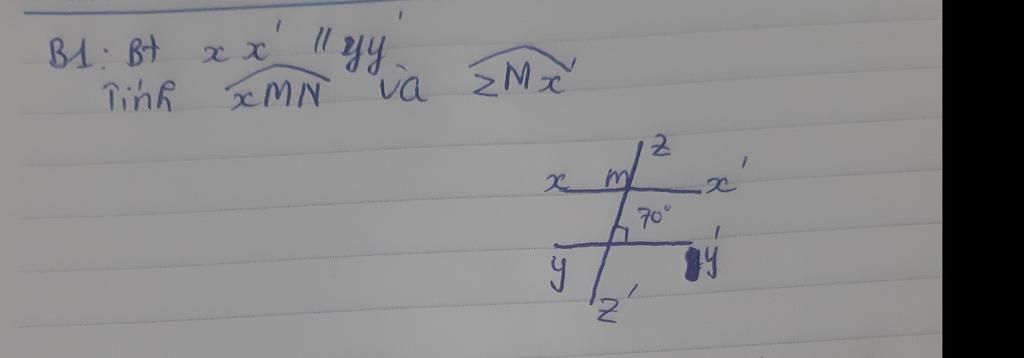 B1: Bt xx' // yy'
Tính xMN và zMx'
z
x m x'
70°
y y'
z'